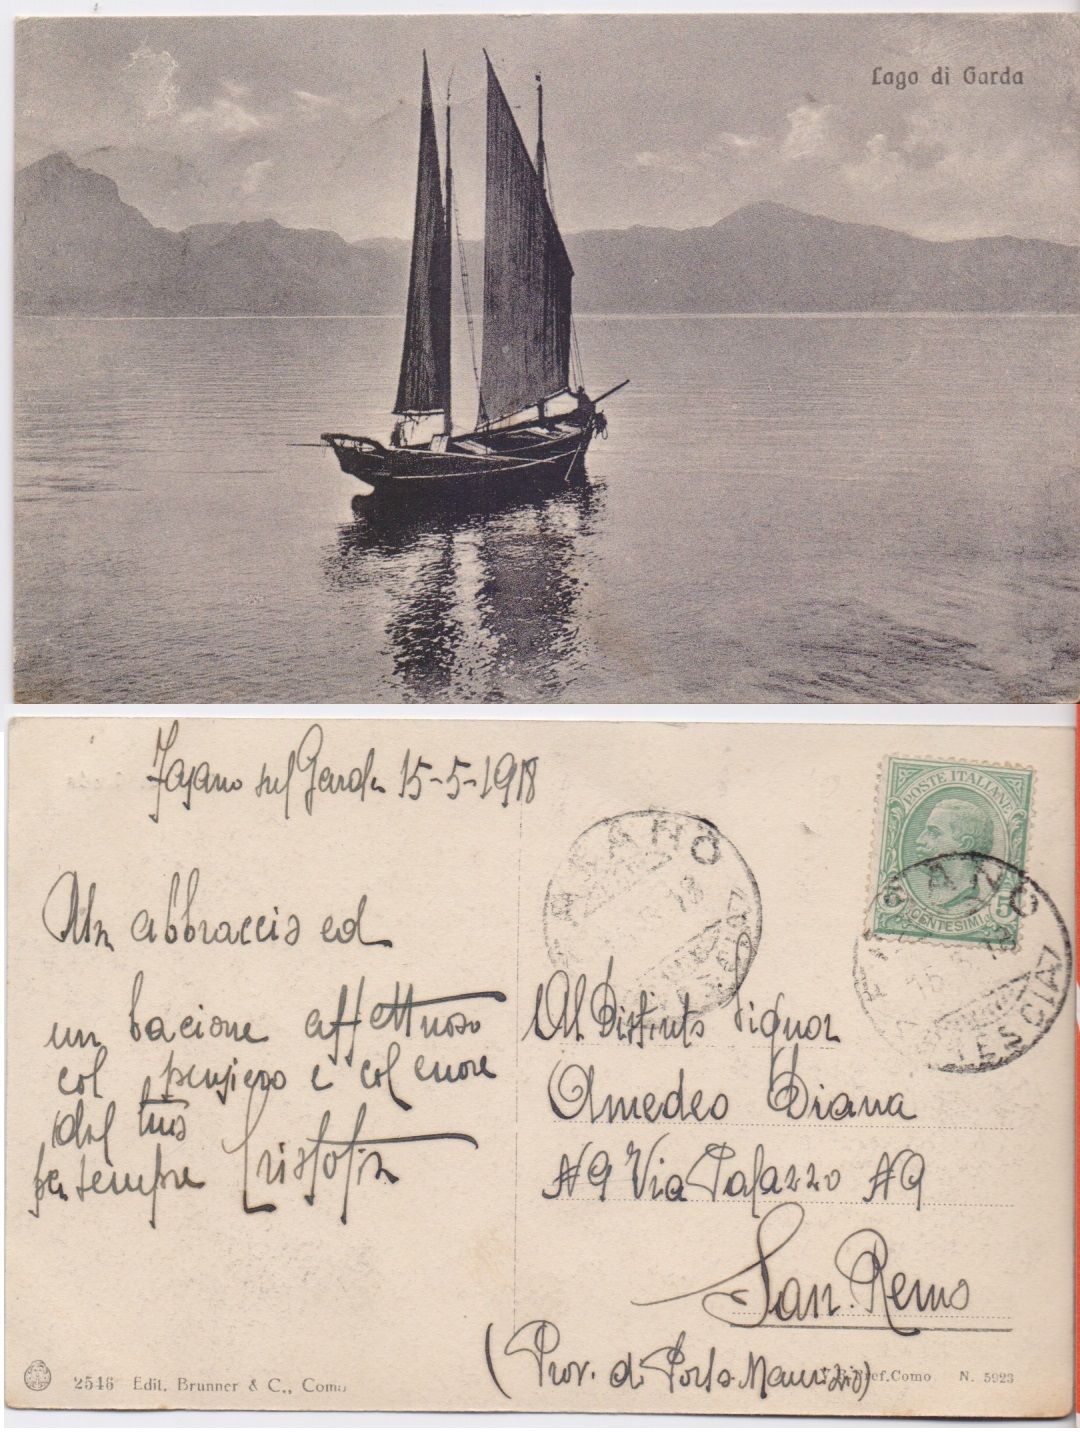 Lago di Garda
Fasano sul Garda 15-5-1918
Un abbraccio ed
un bacione affettuoso
col pensiero e col cuore
del tuo
per sempre
POSTE ITALIANE
CENTESIMI 5
FASANO
BRESCIA
FASANO
BRESCIA
Al Distinto Signor
Amedeo Diana
N9 Via Palazzo N9
San Remo
(Prov. di Porto Maurizio)
2546 Edit. Brunner & C., Como
Pref. Como N. 5923